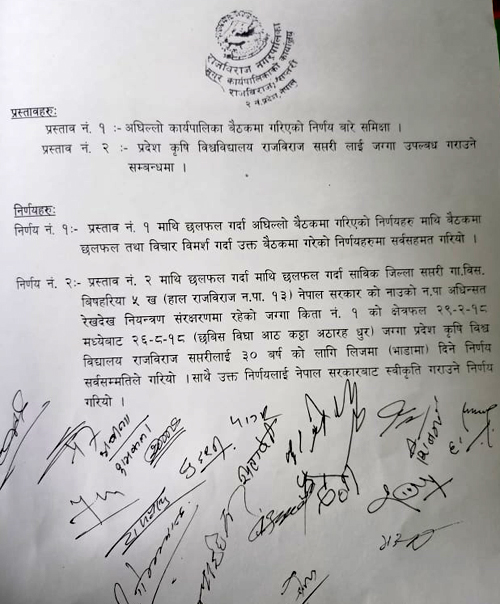 राजविराज नगरपालिका
नगर कार्यपालिकाको कार्यालय
राजविराज, सप्तरी
२ नं.प्रदेश, नेपाल
प्रस्तावहरुः
प्रस्ताव नं. १ :- अघिल्लो कार्यपालिका बैठकमा गरिएको निर्णय बारे समिक्षा ।
प्रस्ताव नं. २ :- प्रदेश कृषि विश्वविद्यालय राजविराज सप्तरी लाई जग्गा उपलब्ध गराउने
सम्बन्धमा ।
निर्णयहरुः
निर्णय नं. १:- प्रस्ताव नं. १ माथि छलफल गर्दा अघिल्लो बैठकमा गरिएको निर्णयहरु माथि बैठकमा
छलफल तथा विचार विमर्श गर्दा उक्त बैठकमा गरेको निर्णयहरुमा सर्वसहमत गरियो ।
निर्णय नं. २:- प्रस्ताव नं. २ माथि छलफल गर्दा माथि छलफल गर्दा साविक जिल्ला सप्तरी गा.विस.
विषहरिया ५ ख (हाल राजविराज न.पा. १३) नेपाल सरकार को नाउको न.पा अधिन्सत
रेखदेख नियन्त्रण संरक्षणमा रहेको जग्गा किता नं. १ को क्षेत्रफल २९-२-१८
मध्येबाट २६-८-१८ (छबिस विघा आठ कठ्ठा अठारह धुर) जग्गा प्रदेश कृषि विश्व
विद्यालय राजविराज सप्तरीलाई ३० बर्ष को लागि लिजमा (भाडामा) दिने निर्णय
सर्वसम्मतिले गरियो ।साथै उक्त निर्णयलाई नेपाल सरकारबाट स्वीकृति गराउने निर्णय
गरियो ।